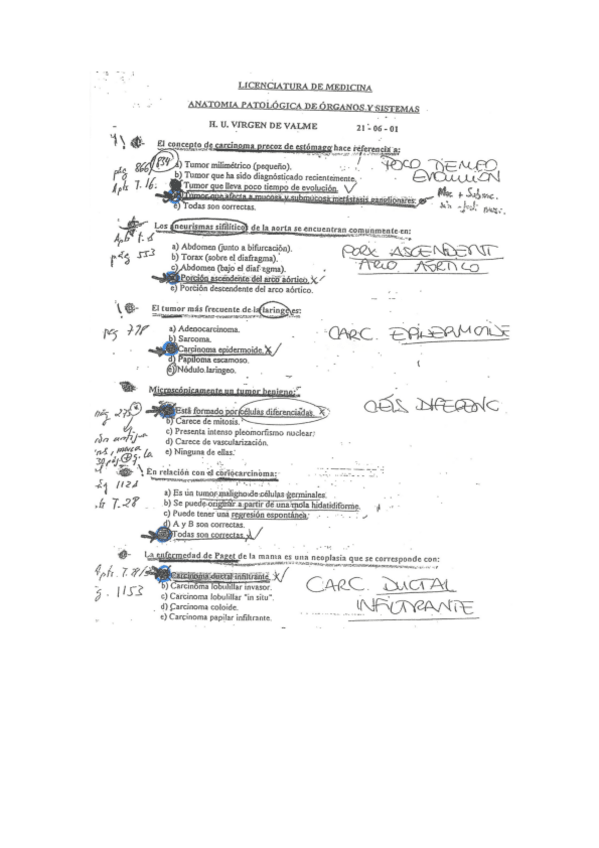 LICENCIATURA DE MEDICINA
ANATOMIA PATOLÓGICA DE ÓRGANOS Y SISTEMAS
H. U. VIRGEN DE VALME 21 - 06 - 01
El concepto de carcinoma precoz de estómago hace referencia a:
a) Tumor milimétrico (pequeño).
b) Tumor que ha sido diagnósticado recientemente.
Tumor que lleva poco tiempo de evolución.
Tumor que afecta a mucosa y submucosa metástasis ganglionares.
e) Todas son correctas.
pág 866 839
Apts T. 16.
POCO TIEMPO
EVOLUCION
Muc + Submuc.
Los aneurismas sifilítico de la aorta se encuentran comunmente en:
a) Abdomen (junto a bifurcación).
b) Torax (sobre el diafragma).
c) Abdomen (bajo el diafragma).
Porción ascendente del arco aórtico. X
e) Porción descendente del arco aórtico.
pág 553
PORX ASCENDENT
ARCO AÓRTICO
El tumor más frecuente de la laringe es:
a) Adenocarcinoma.
b) Sarcoma.
Carcinoma epidermoide. X
d) Papiloma escamoso.
e) Nódulo laringeo.
pág 778
CARC. EPIDERMOIDE
Microscópicamente un tumor benigno:
Está formado por células diferenciadas. X
b) Carece de mitosis.
c) Presenta intenso pleomorfismo nuclear.
d) Carece de vascularización.
e) Ninguna de ellas.
CÉLS DIFERENC
En relación con el coriocarcinoma:
a) Es un tumor maligno de células germinales.
b) Se puede originar a partir de una mola hidatidiforme.
c) Puede tener una regresión espontánea.
d) A y B son correctas.
Todas son correctas.
1121
T. 28
La enfermedad de Paget de la mama es una neoplasia que se corresponde con:
Carcinoma ductal infiltrante. X
b) Carcinoma lobulillar invasor.
c) Carcinoma lobulillar "in situ".
d) Carcinoma coloide.
e) Carcinoma papilar infiltrante.
g. 1153
CARC. DUCTAL
INFILTRANTE